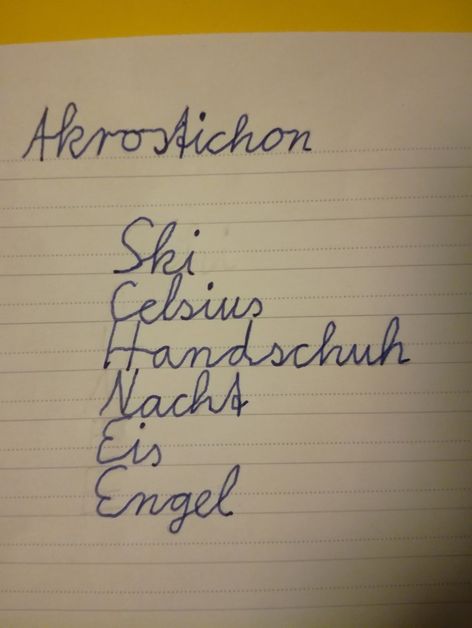 Akrostichon
Ski
Celsius
Handschuh
Nacht
Eis
Engel